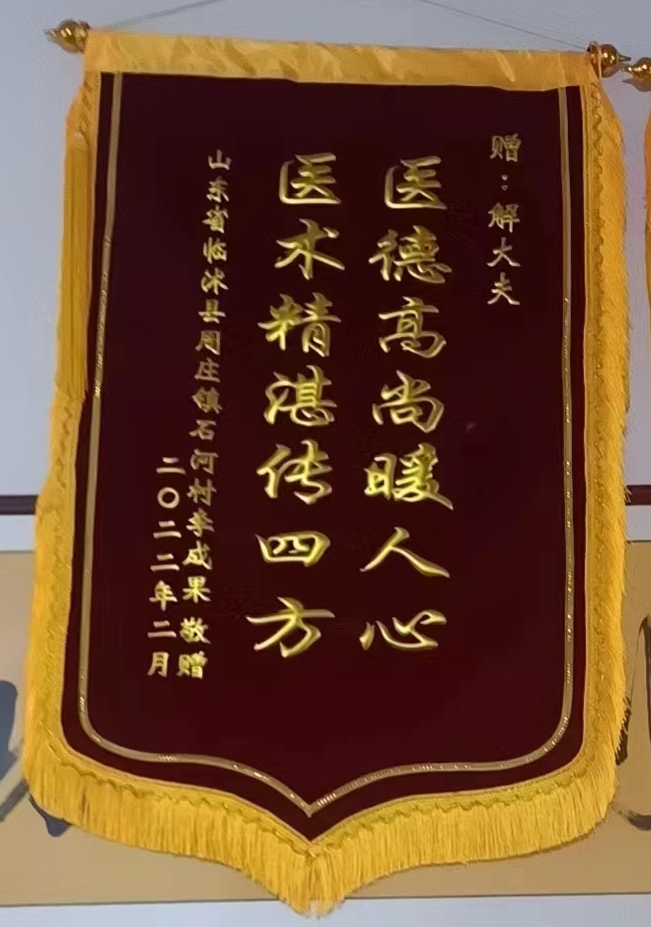 赠：解大夫
医德高尚暖人心
医术精湛传四方
山东省临沭县周庄镇石河村李成果敬赠
二〇二二年二月